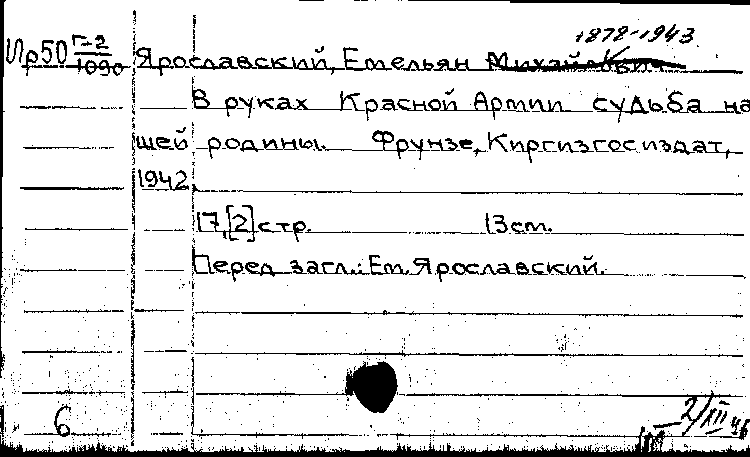 1878-1943
Ир50 Г-2/1090 Ярославский, Емельян Михайлович
В руках Красной Армии судьба на
шей родины. Фрунзе, Киргизгосиздат,
1942.
17,[2]стр. 13см.
Перед загл.: Ем. Ярославский.
6
2/XII 46